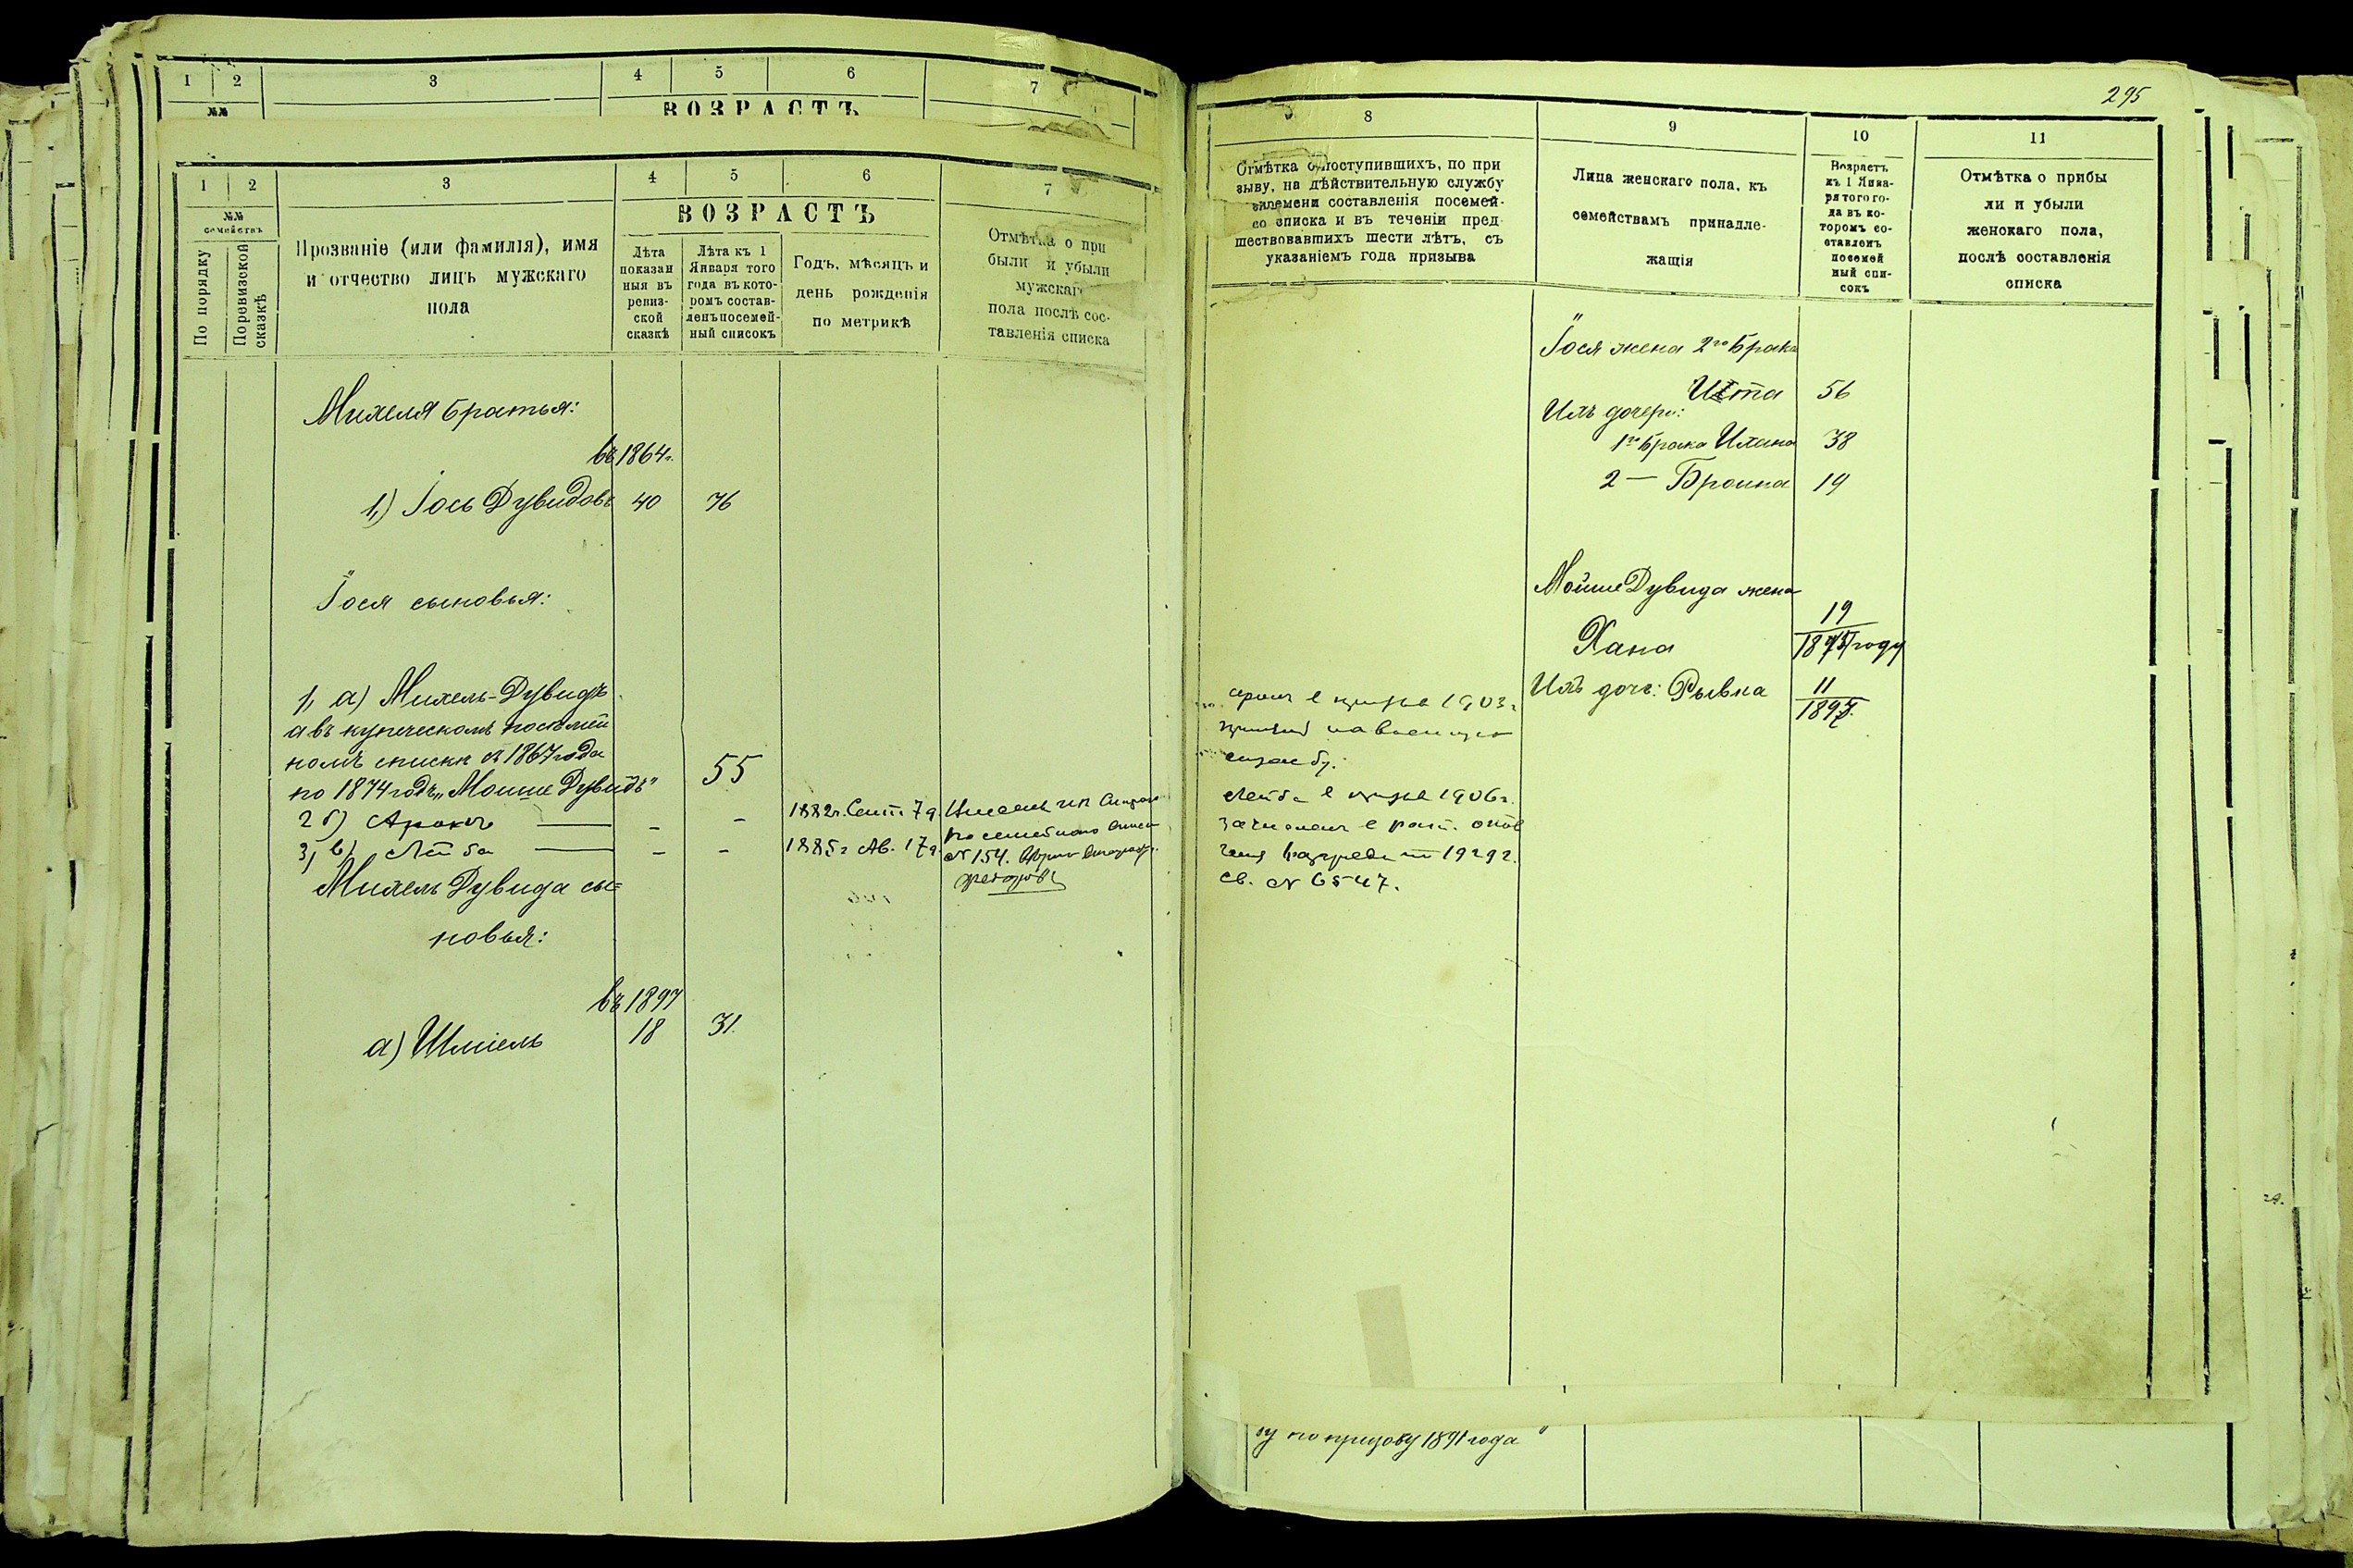 1 2 3 4 5 6 7
№№ ВОЗРАСТЪ
1 2 3 4 5 6 7
№№ семействъ
По порядку
По ревизской сказкѣ
Прозваніе (или фамилія), имя
и отчество лицъ мужскаго
пола
ВОЗРАСТЪ
Лѣта
показан
ныя въ
ревиз-
ской
сказкѣ
Лѣта къ 1
Января того
года въ кото-
ромъ состав-
ленъ посемей-
ный списокъ
Годъ, мѣсяцъ и
день рожденія
по метрикѣ
Отмѣтка о при
были и убыли
мужскаг
пола послѣ сос-
тавленія списка
Михеля братья:
въ 1864 г.
1,) Іось Дувидовъ 40 76
Іося сыновья:
1, а) Михель-Дувидъ
а въ купеческомъ посемей
номъ списки съ 1867 года
по 1874 годъ „Мошше Дувидъ" 55
2 б) Аронъ — - - 1882 г. Сент. 7 д.
3, в) Лейба — - - 1885 г Ав. 17 д.
№ 154.
Михель Дувида сы=
новья:
въ 1897
а) Шміель 18 31
295
8 9 10 11
Отмѣтка о поступившихъ, по при
зыву, на дѣйствительную службу
времени составленія посемей-
со списка и въ теченіи пред
шествовавшихъ шести лѣтъ, съ
указаніемъ года призыва
Лица женскаго пола, къ
семействамъ принадле-
жащія
Возрастъ
къ 1 Янва-
ря того го-
да въ ко-
торомъ со-
ставленъ
посемей
ный спи-
сокъ
Отмѣтка о прибы
ли и убыли
женскаго пола,
послѣ составленія
списка
Іося жена 2го брака
Ита 56
Ихъ дочери:
1го брака Ихана 38
2 — Броина 19
Мойше Дувида жена
Хана 19
году
Ихъ дочь: Рывка 11
1903 г
службу.
Лейба в призыв 1906 г.
св. № 6547.
по призову 1891 года